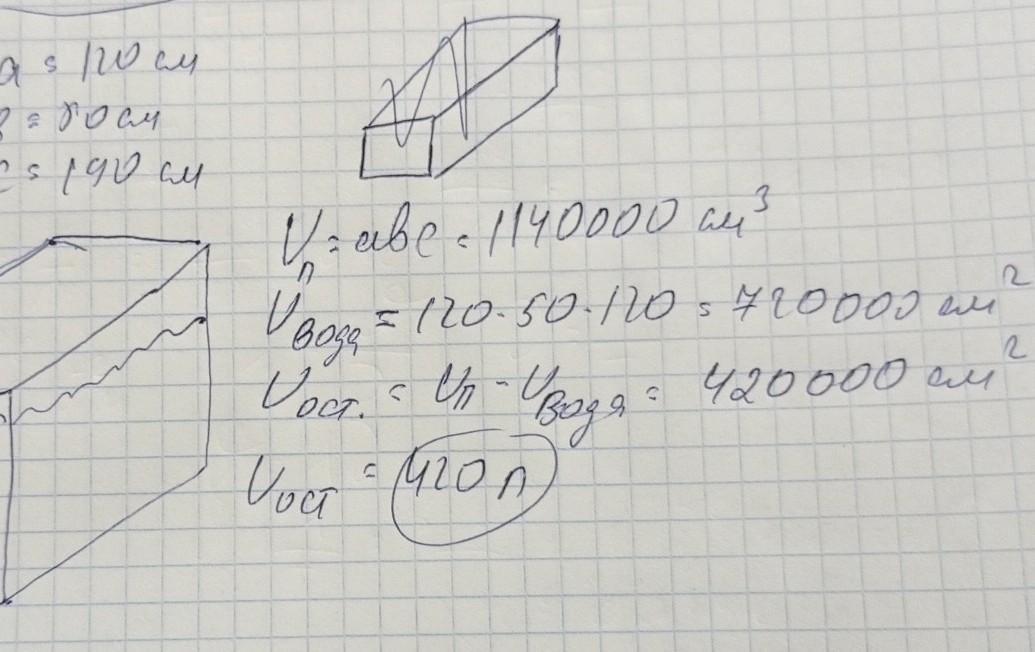 a = 120 см
в = 50 см
c = 190 см
Vп = авс = 1140000 см³
Vвода = 120·50·120 = 720000 см²
Vост. = Vп - Vводя = 420000 см²
Vост = 420 л